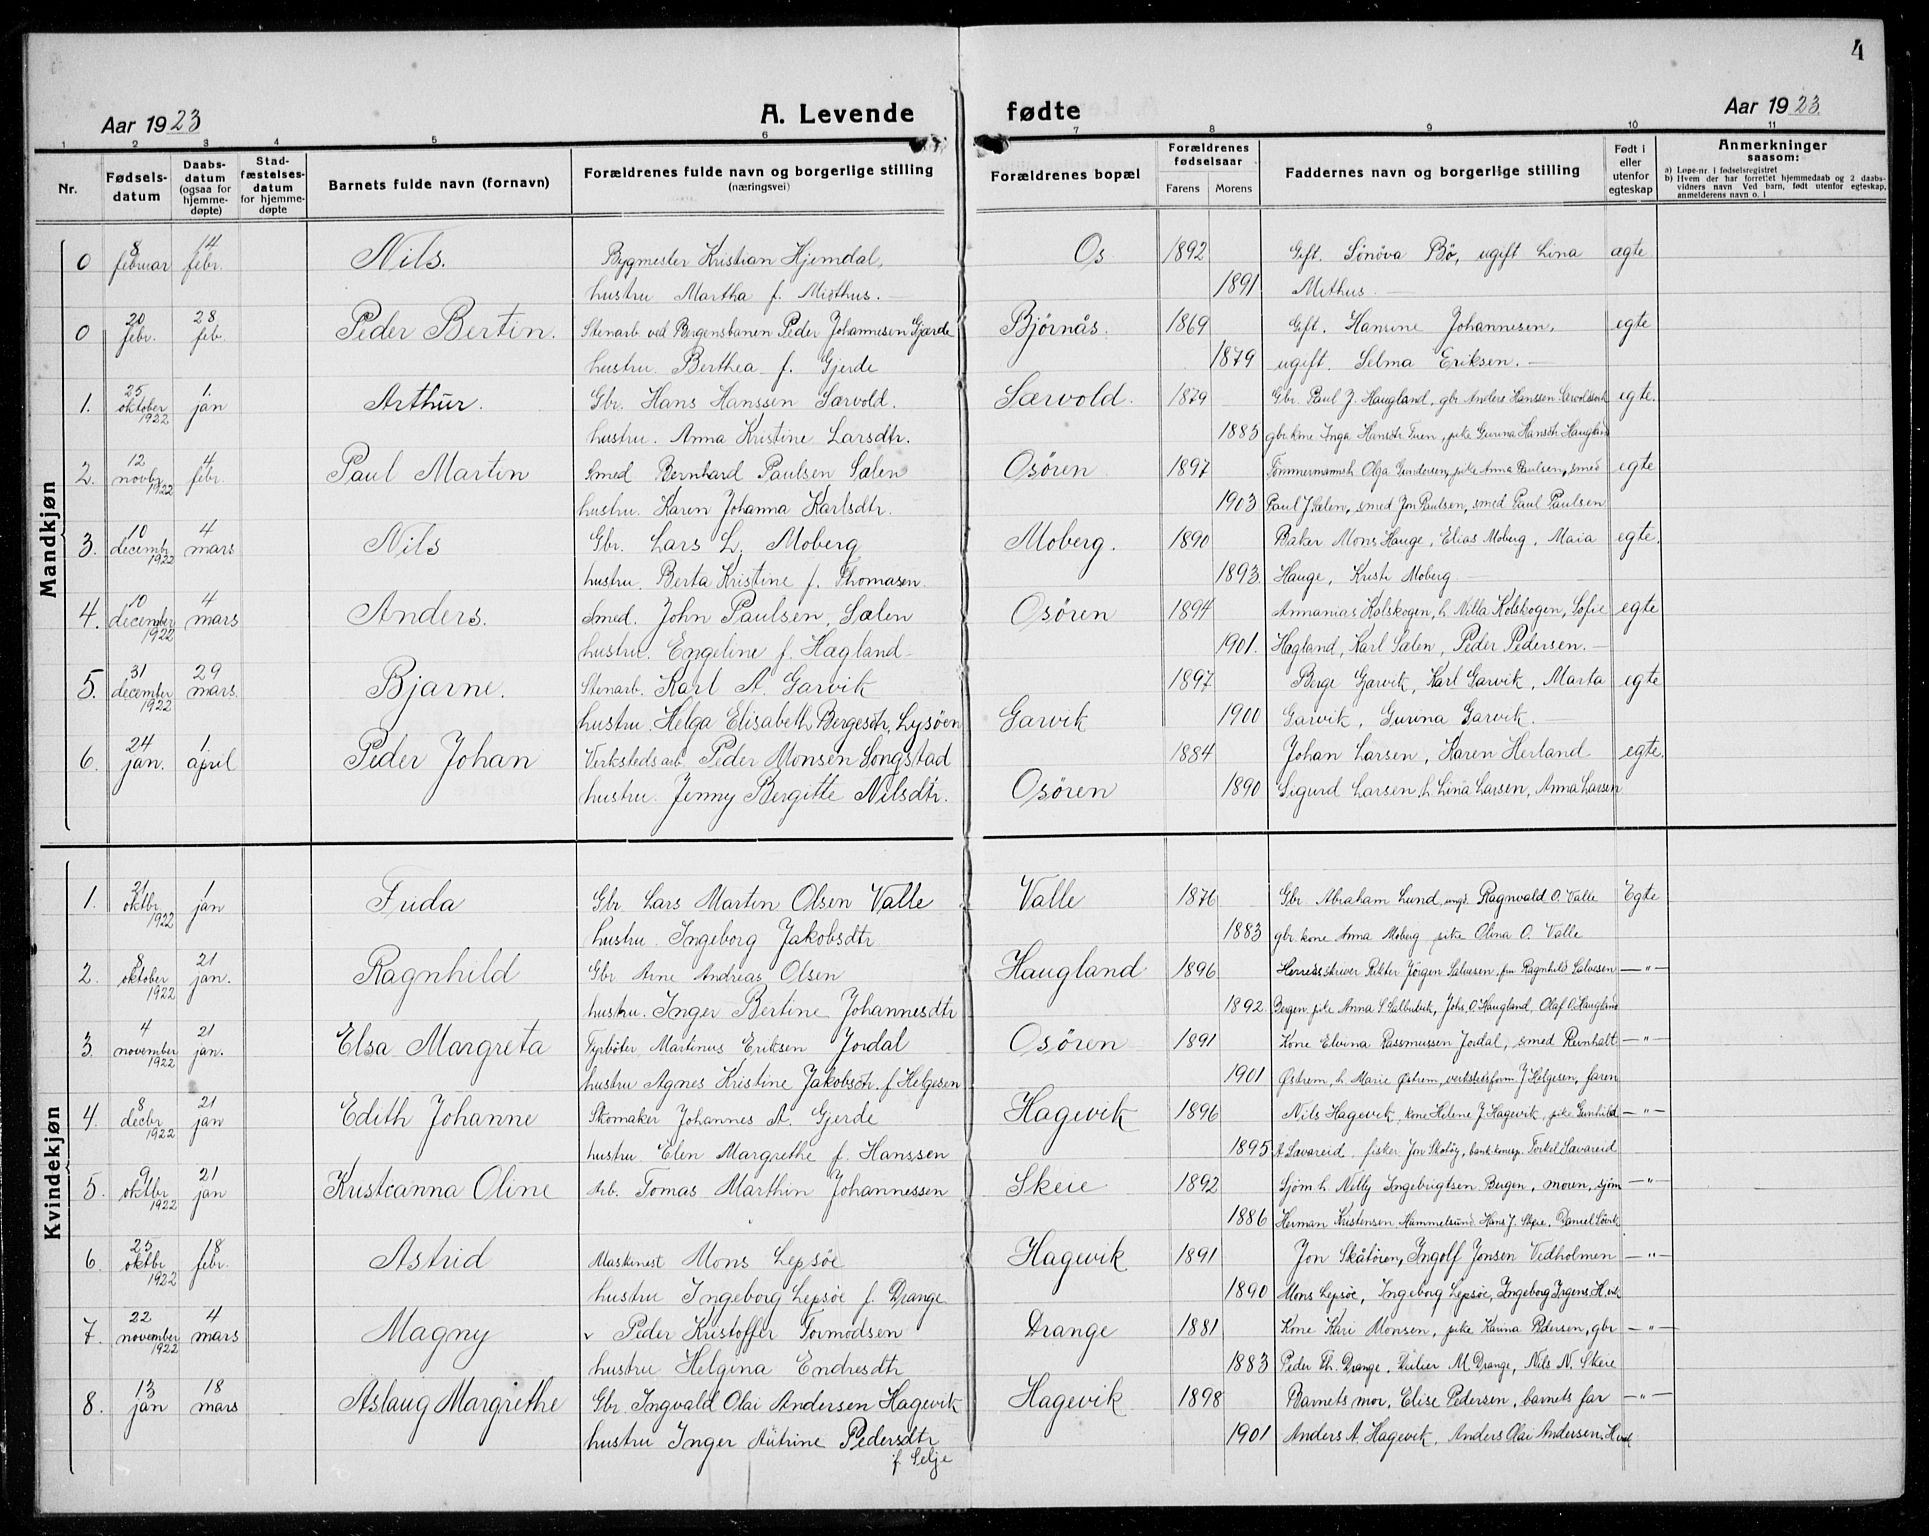 4
Aar 1923
A. Levende fødte
Aar 1923.
1 2 3 4 5 6 7 8 9 10 11
Nr.
Fødselsdatum
Daabsdatum (ogsaa for hjemmedøpte)
Stadfæstelsesdatum for hjemmedøpte
Barnets fulde navn (fornavn)
Forældrenes fulde navn og borgerlige stilling (næringsvei)
Forældrenes bopæl
Forældrenes fødselsaar
Farens Morens
Faddernes navn og borgerlige stilling
Født i eller utenfor egteskap
Anmerkninger saasom:
a) Løpe-nr. i fødselsregistret
b) Hvem der har forrettet hjemmedaab og 2 daabsvidners navn Ved barn, født utenfor egteskap, anmelderens navn o. l
Mandkjøn
0 8 februar 14 febr. Nils. Bygmester Kristian Hjemdal, Os 1892 Gift. Sönöva Bö, ugift Lina ægte
hustru Martha f. Midthus. 1891 Mithus.
0 20 febr. 28 feb. Peder Bertin. Stenarb ved Bergensbanen Peder Johannesen Gjærde Bjørnås. 1869 Gift. Hansine Johannesen, egte
hustru. Berthea f. Gjerde 1879 ugift. Selma Eriksen.
1. 25 oktober 1922 1. jan Arthur. Gbr. Hans Hanssen Særvold. Særvold. 1879 Gbr. Paul J. Haugland, gbr Anders Hanssen egte.
hustru. Anna Kristine Larsdtr. 1883 gbr kone Inga Hansdtr Tuen, pike Gurina Hansdtr Haugland
2. 12 novbr 1922 4 febr. Paul Martin Smed Bernhard Paulsen Sælen Osören 1897 Tömmermannsh. Olga Gundersen, pike Anna Paulsen, smed egte
hustru. Karen Johanna Karlsdtr. 1903 Paul J Sælen, smed Jon Paulsen, smed Paul Paulsen
3. 10 decembr 1922 4 mars Nils Gbr. Lars L. Moberg Moberg. 1890 Baker Mons Hauge, Elias Moberg, Maia egte.
hustru. Berta Kristine f. Thomasen. 1893 Hauge, Kristi Moberg
4. 10 december 1922 4 mars Anders. Smed. John Paulsen, Sælen Osören 1894 Annanias Kolskogen, h. Nilla Kolskogen, Sofie egte
hustru. Engeline f. Hagland 1901. Hagland, Karl Sælen, Peder Pedersen.
5. 31 december 1922 29 mars. Bjarne. Stenarb. Karl A. Garvik 1897 Berge Garvik, Karl Garvik, Marta egte
hustru. Helga Elisabeth Bergesdtr, Lysöen Garvik 1900 Garvik, Gurina Garvik.
6. 24 jan. 1 april Peder Johan Verkstedsarb. Peder Monsen Songstad 1884 Johan Larsen, Karen Herland egte.
hustru. Jenny Bergitte Nilsdtr. Osören 1890 Sigurd Larsen, h Lina Larsen, Anna Larsen
Kvindekjøn
1. 21 oktbr. 1922 1 jan Frida Gbr. Lars Martin Olsen Valle Valle 1876 Gbr Abraham Lund, ungk Ragnvald O. Valle Egte
hustru. Ingeborg Jakobsdtr 1883 gbr kone Anna Moberg pike Olina O. Valle
2. 8 oktober 1922 21 jan. Ragnhild Gbr Arne Andreas Olsen Haugland 1896 Herredsskriver Rikter Jørgen Salvesen, fru Ragnhild Salvesen —"—
hustru. Inger Bertine Johannesdtr 1892 Bergen. pike Anna S Salbuvik, Johs. O Haugland, Olaf O. Haugland
3. 4 november 1922 21 jan. Elsa Margreta Fyrböter Martinus Eriksen Jordal Osören 1891 Kone Elvina Rassmussen Jordal, smed Reinhalt —"—
hustru Agnes Kristine Jakobsdtr. f Helgesen 1901 Østrem, h. Marie Østrem, verkstedsform J Helgesen, faren
4. 8 decbr 1922 21 jan Edith Johanne Skomaker Johannes A. Gjerde Hagevik 1896 Nils Hagevik, kone Helene J Hagevik, pike Gunhild —"—
hustru. Elen Margrethe f. Hanssen 1895 A Savareid fisker Jon Skatöy, Torkel Savareid
5. 9 oktbr 1922 21 jan Kristianna Oline Arb. Tomas Marthin Johannessen Skeie 1892 Sjøm h. Nelly Ingebrigtsen Bergen, moren, sjøm —"—
1886 Herman Kristensen Hammelsund Hans J. Skeie. Daniel Søvik
6. 25 oktbr 1922 18 febr. Astrid Maskinist Mons Lepsöe Hagevik 1891 Jon Skåtören, Ingolf Jonsen Vedholmen —"—
hustru Ingeborg Lepsöe f. Drange 1890 Mons Lepsöe, Ingeborg Lepsöe, Ingeborg Irgens H.vik
7. 22 november 1922 4 mars Magny Peder Kristoffer Tormodsen Drange 1881 Kone Kari Monsen, pike Karina Pedersen, gbr —"—
hustru Helgina Endresdtr 1883 Peder Th. Drange. M. Drange, Nils N. Skeie
8. 13 jan 18 mars Aslaug Margrethe Gbr. Ingvald Olai Andersen Hagevik Hagevik 1898 Barnets mor, Elise Pedersen, barnets far —"—
hustru Inger Autrine Pedersdtr 1901 Anders A. Hagevik, Anders Olai Andersen, H.vik
f. Selje